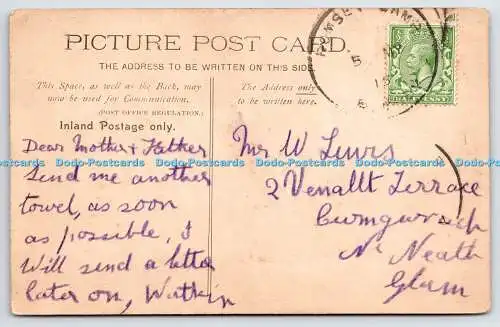 PICTURE POST CARD.
THE ADDRESS TO BE WRITTEN ON THIS SIDE
This Space, as well as the Back, may
now be used for Communication.
(POST OFFICE REGULATION.)
Inland Postage only.
The Address only
to be written here.
Dear Mother & Father
Send me another
towel, as soon
as possible, I
Will send a letter
later on, Watkin
Mr W Lewis
2 Venallt Terrace
Cwmgwrach
Nr Neath
Glam
HALF PENNY
Dodo-Postcards Dodo-Postcards Dodo-Postcards Dodo-Postcards